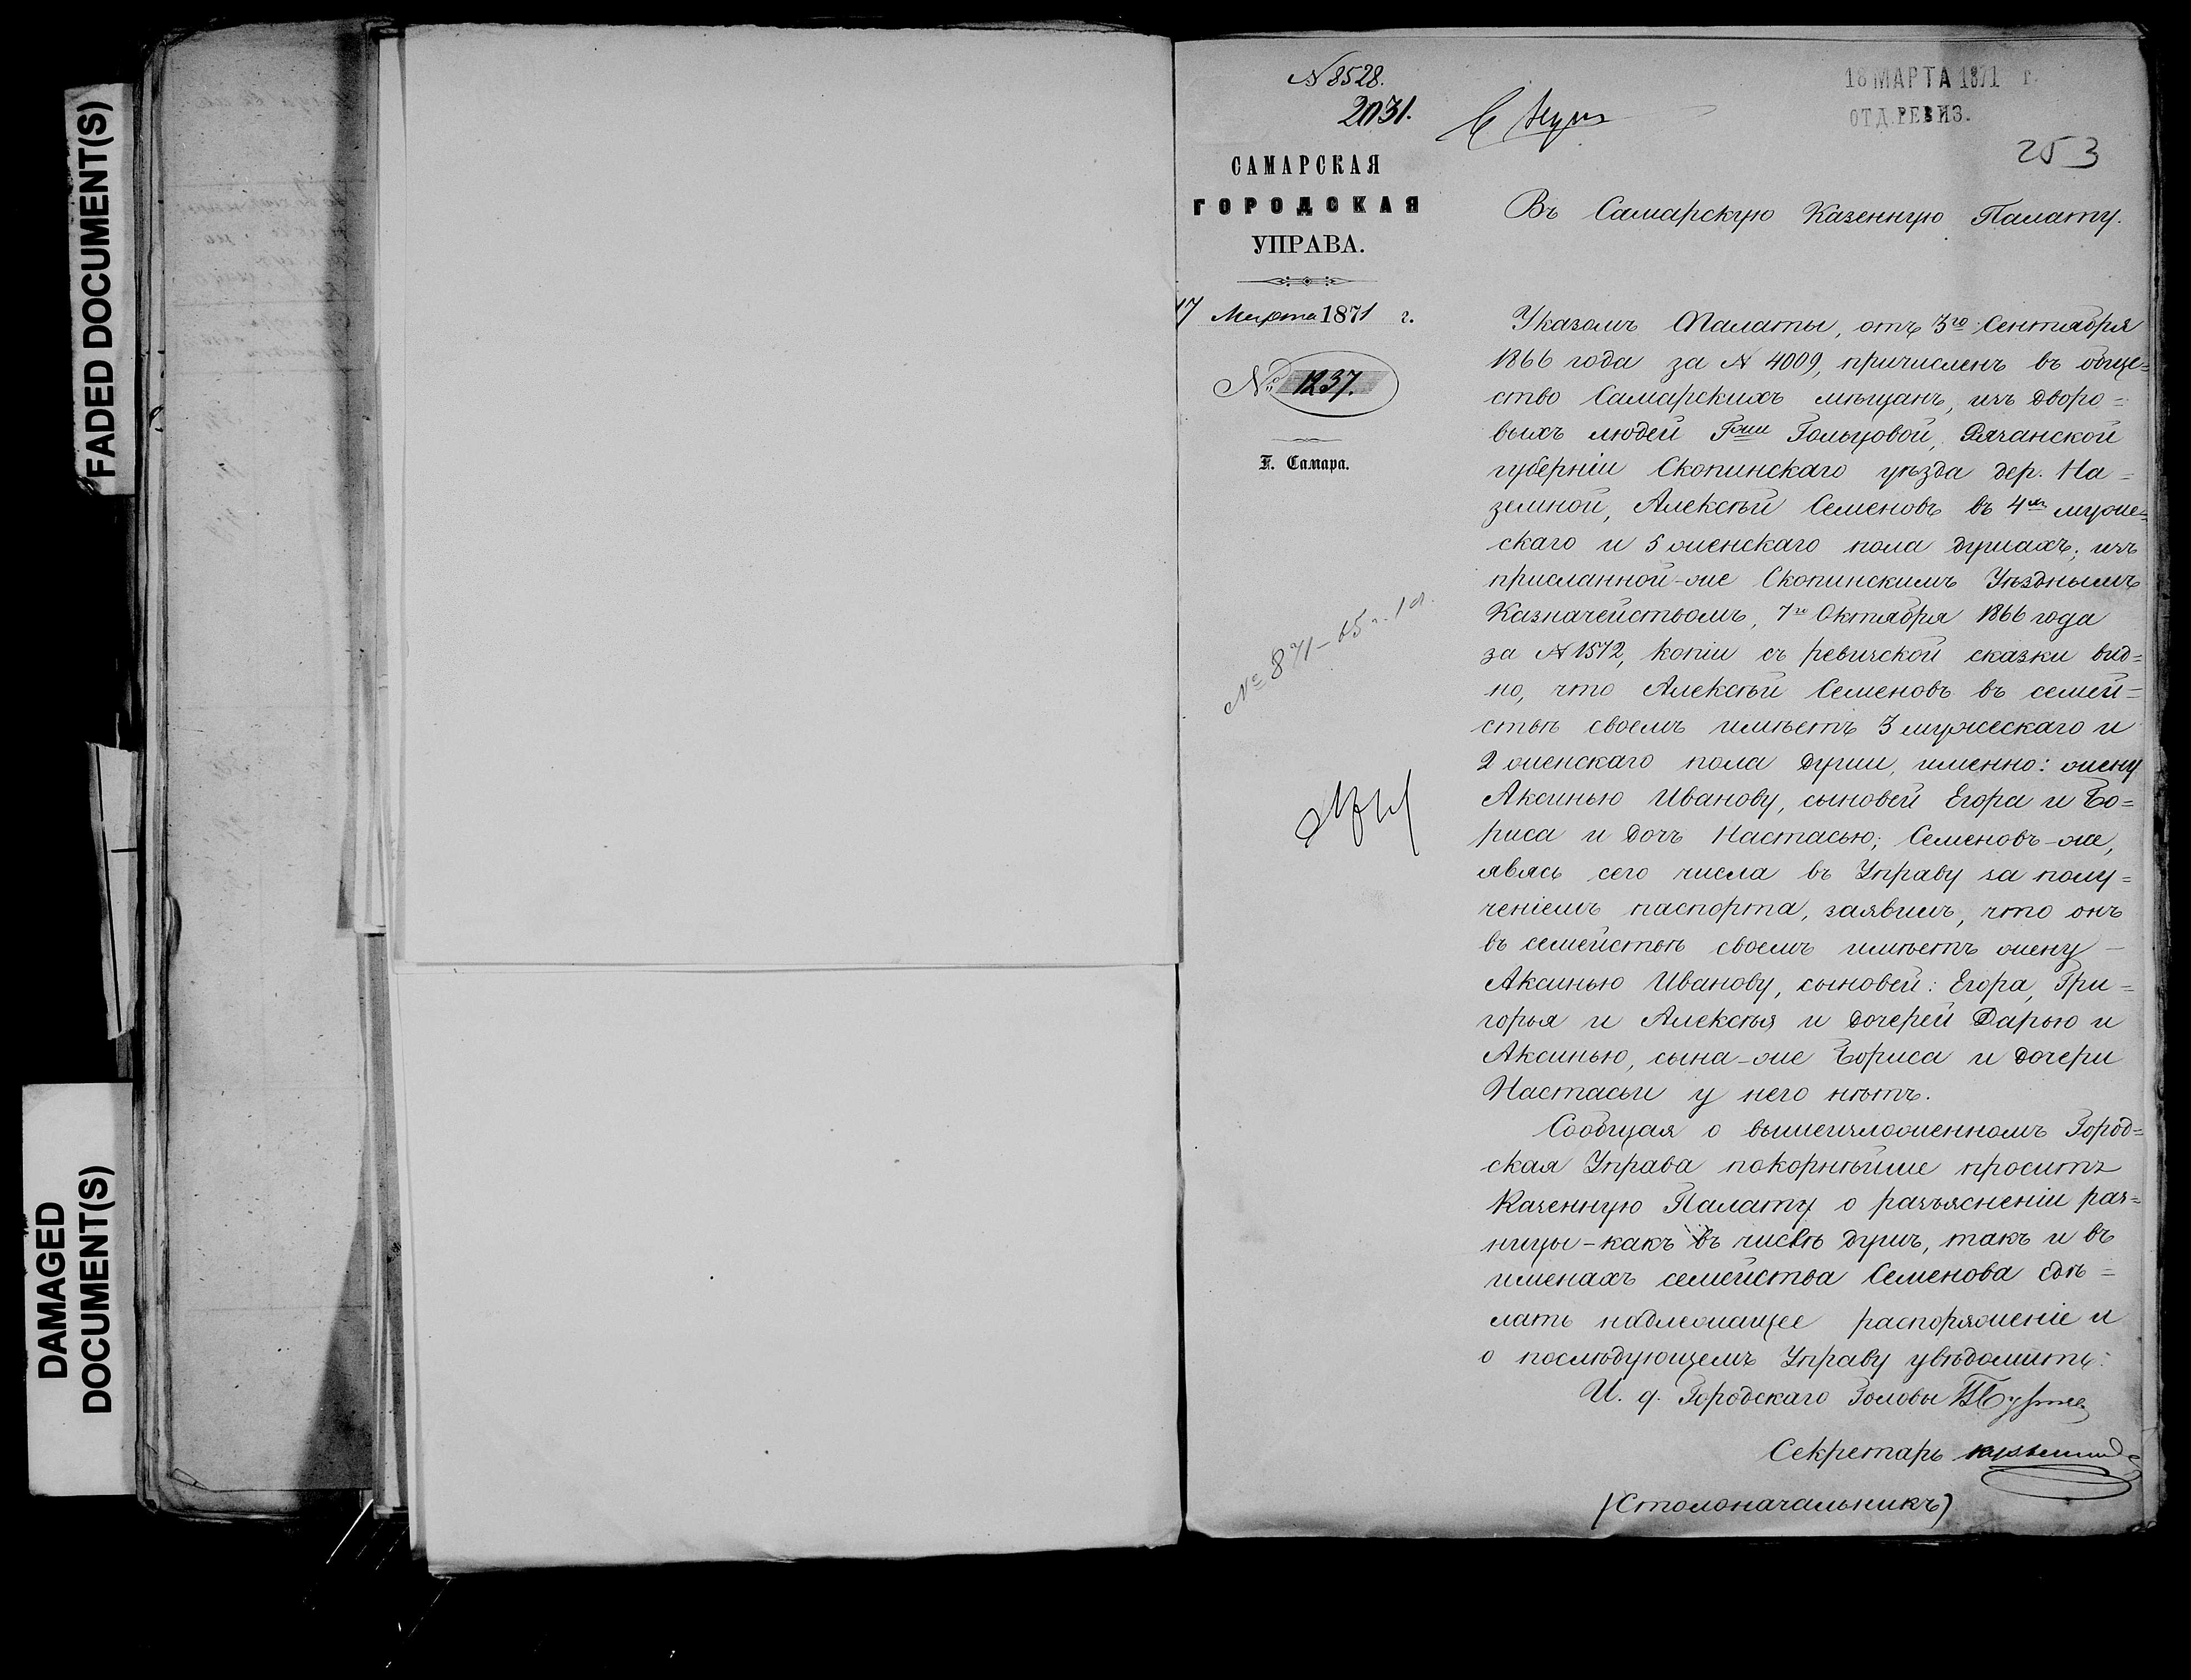 FADED DOCUMENT(S)
DAMAGED
DOCUMENT(S)
N 8528.
2031.
САМАРСКАЯ
ГОРОДСКАЯ
УПРАВА.
17 Марта 1871 г.
№ 1237.
Г. Самара.
№ 871-65 г.
18 МАРТА 1871 г.
ОТД. РЕВИЗ.
253
Въ Самарскую Казенную Палату.
Указомъ Палаты, отъ 3го Сентября
1866 года за N 4009, причисленъ въ обще=
ство Самарскихъ мѣщанъ, изъ дворо=
выхъ людей Гжи Гольцовой, Рязанской
губерніи Скопинскаго уѣзда дер. На=
земной, Алексѣй Семеновъ въ 4хъ муже=
скаго и 5 женскаго пола душахъ; изъ
присланной-же Скопинскимъ Уѣзднымъ
Казначействомъ, 7го Октября 1866 года
за N 1572, копіи съ ревизской сказки вид=
но, что Алексѣй Семеновъ въ семей=
ствѣ своемъ имѣетъ 3 мужескаго и
2 женскаго пола души, именно: жену
Аксинью Иванову, сыновей Егора и Бо=
риса и дочь Настасью; Семеновъ-же,
явясь сего числа въ Управу за полу=
ченіемъ паспорта, заявилъ, что онъ
въ семействѣ своемъ имѣетъ жену -
Аксинью Иванову, сыновей: Егора, Гри=
горья и Алексѣя и дочерей Дарью и
Аксинью, сына-же Бориса и дочери
Настасьи у него нѣтъ.
Сообщая о вышеизложенномъ Город=
ская Управа покорнѣйше проситъ
Казенную Палату о разъясненіи раз=
ницы - какъ въ числѣ душъ, такъ и въ
именахъ семейства Семенова сдѣ=
лать надлежащее распоряженіе и
о послѣдующемъ Управу увѣдомить.
И. д. Городскаго Головы
Секретарь
(Столоначальникъ)